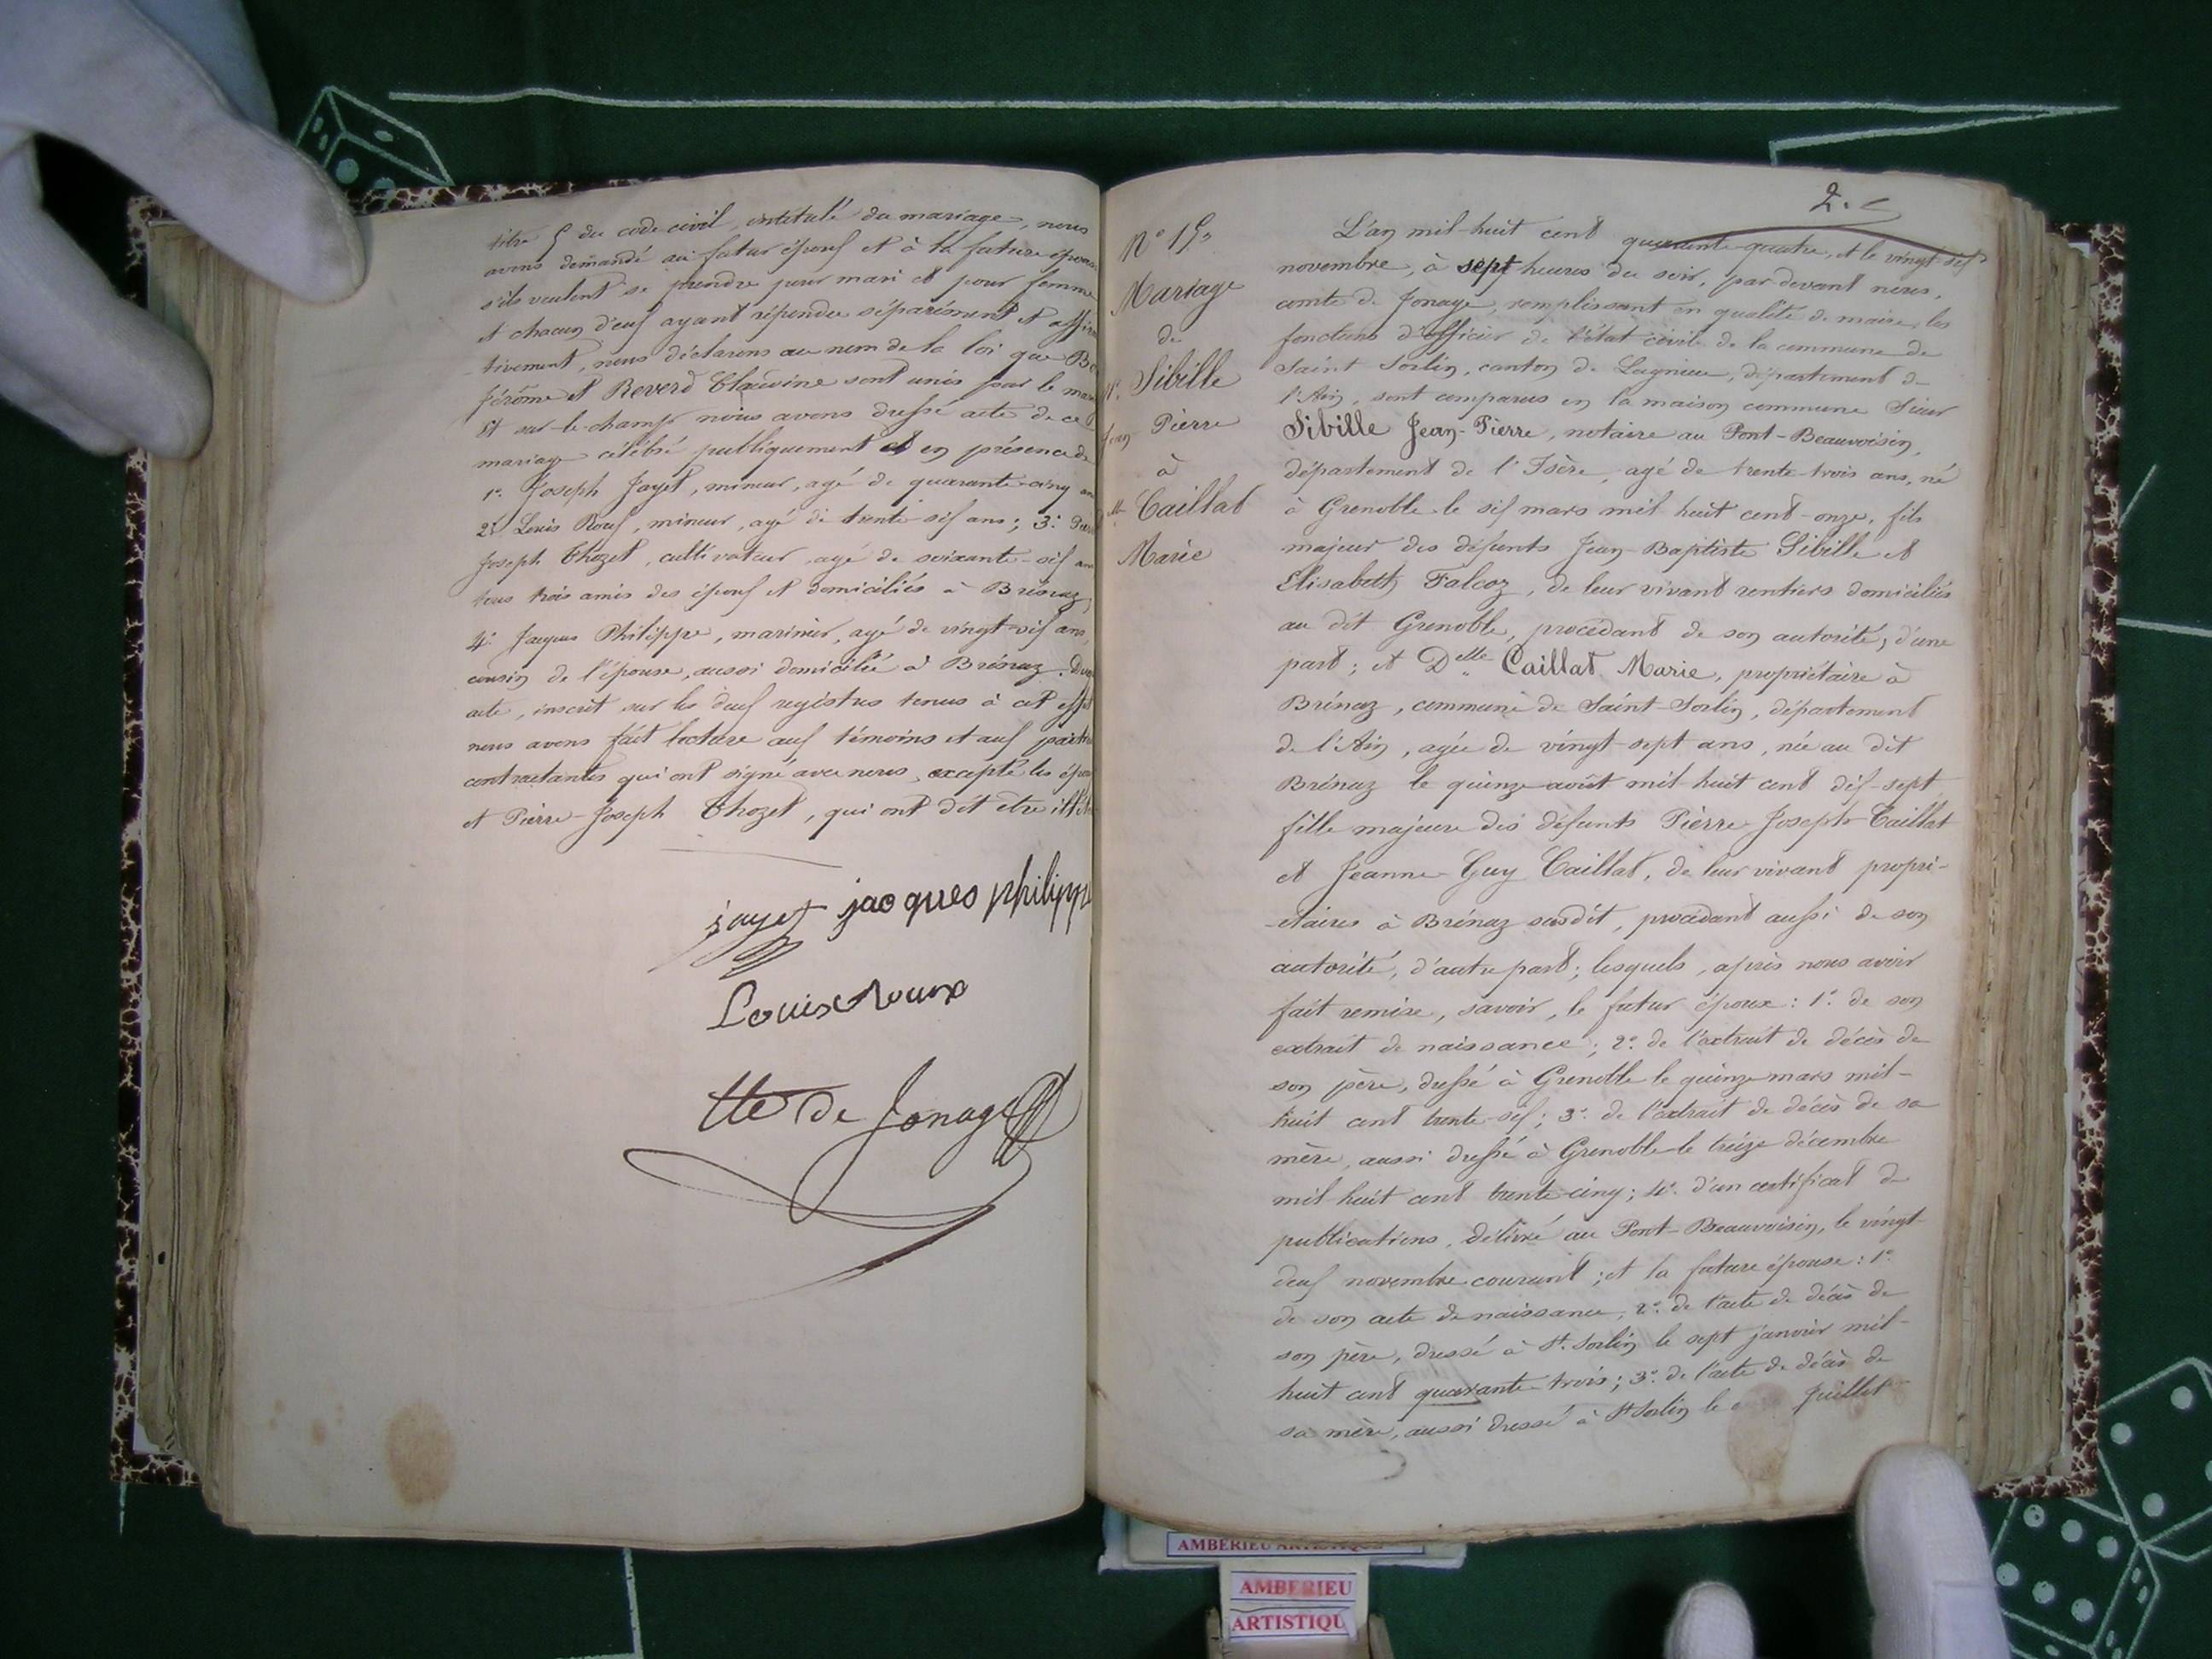 titre 5 du code civil, intitulé du mariage, nous
avons demandé au futur époux et à la future épouse
s'ils veulent se prendre pour mari et pour femme
et chacun d'eux ayant répondu séparément et affir
tivement, nous déclarons au nom de la loi que
Jérôme et Reverd sont unis par le
Et sur-le-champ nous avons dressé acte de ce
mariage célébré publiquement et en présence de
1° Joseph Jayet, mineur, agé de quarante-cinq
2° Louis Roux, mineur, agé de trente-six ans; 3°
Joseph Thozet, cultivateur, agé de soixante-six
tous trois amis des époux et domiciliés à Brénaz,
4° Jacques Philippe, marinier, agé de vingt-six ans,
cousin de l'épouse, aussi domicilié à Brénaz. Du
acte, inscrit sur les deux registres tenus à cet effet
nous avons fait lecture aux témoins et aux parties
contractantes qui ont signé avec nous, excepté les
et Pierre-Joseph Thozet, qui ont dit être
jayet jacques philippe
Louis Roux
Cte de Jonage
2.
N° 15.
Mariage
de
Sr. Sibille
Jean Pierre
à
Dlle Caillat
Marie
L'an mil-huit cent quarante-quatre, et le vingt-six
novembre, à sept heures du soir, par devant nous,
comte de Jonage, remplissant en qualité de maire, les
fonctions d'officier de l'état civil de la commune de
Saint Sorlin, canton de Lagnieu, département de
l'Ain, sont comparus en la maison commune Sieur
Sibille Jean-Pierre, notaire au Pont-Beauvoisin,
département de l'Isère, agé de trente-trois ans, né
à Grenoble le six mars mil huit cent-onze, fils
majeur des défunts Jean-Baptiste Sibille et
Elisabeth Falcoz, de leur vivant rentiers domiciliés
au dit Grenoble, procédant de son autorité, d'une
part; et Delle Caillat Marie, propriétaire à
Brénaz, commune de Saint-Sorlin, département
de l'Ain, agée de vingt-sept ans, née au dit
Brénaz le quinze août mil-huit cent dix-sept
fille majeure des défunts Pierre-Joseph Caillat
et Jeanne Guy Caillat, de leur vivant propri-
-étaires à Brénaz susdit, procédant aussi de son
autorité, d'autre part; lesquels, après nous avoir
fait remise, savoir, le futur époux: 1° de son
extrait de naissance; 2° de l'extrait de décès de
son père, dressé à Grenoble le quinze mars mil-
huit cent trente-six; 3° de l'extrait de décès de sa
mère, aussi dressé à Grenoble le treize décembre
mil-huit cent trente-cinq; 4° d'un certificat de
publications, délivré au Pont-Beauvoisin, le vingt-
deux novembre courant; et la future épouse: 1°
de son acte de naissance, 2° de l'acte de décès de
son père, dressé à St. Sorlin le sept janvier mil-
huit cent quarante-trois; 3° de l'acte de décès de
sa mère, aussi dressé à St Sorlin le juillet
AMBERIEU ARTISTIQUE
AMBERIEU
ARTISTIQU